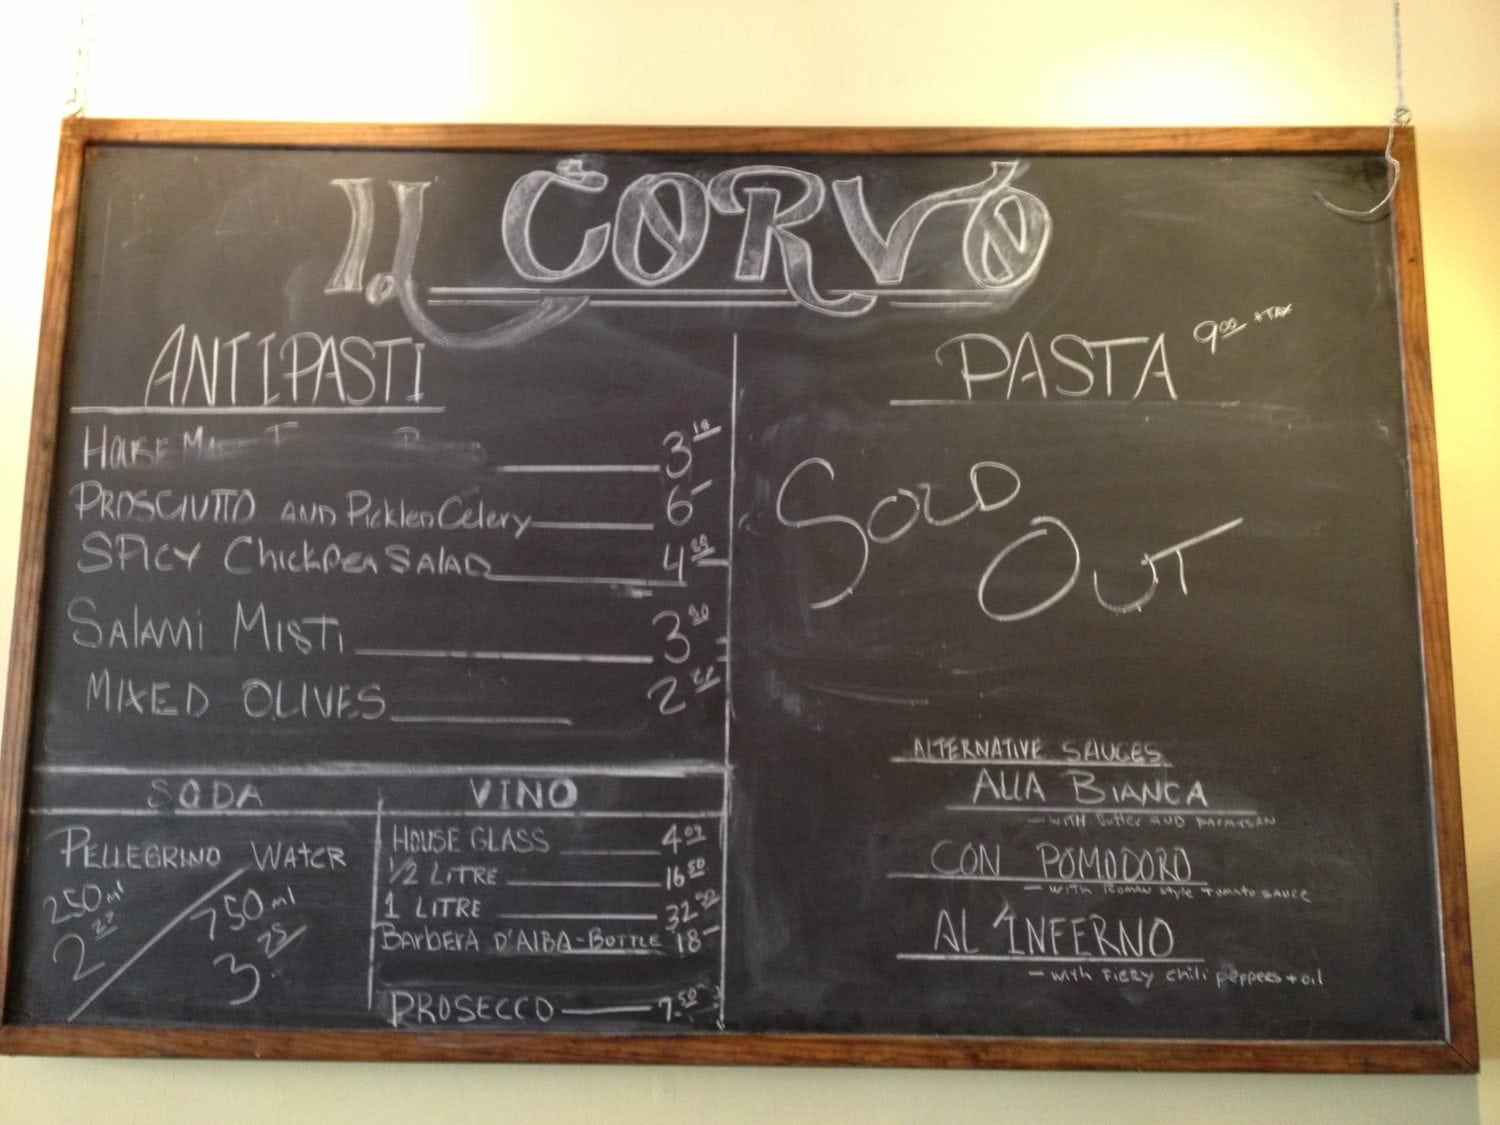 IL CORVO
ANTIPASTI
HOUSE 3
PROSCIUTTO AND Pickled Celery 6-
SPICY Chickpea SALAD 4
SALAMI MISTI 3 50
MIXED OLIVES 2
SODA
PELLEGRINO WATER
250 ml
2
750 ml
3 75
VINO
HOUSE GLASS 4
1/2 LITRE 16 50
1 LITRE 32
BARBERA D'ALBA - BOTTLE 18-
PROSECCO 7.50
PASTA 9 00 + TAX
SOLD
OUT
ALTERNATIVE SAUCES
ALLA BIANCA
- WITH Butter AND PARMESAN
CON POMODORO
- WITH ROMAN STYLE TOMATO SAUCE
AL 'INFERNO
- WITH FIERY chili peppers + oil